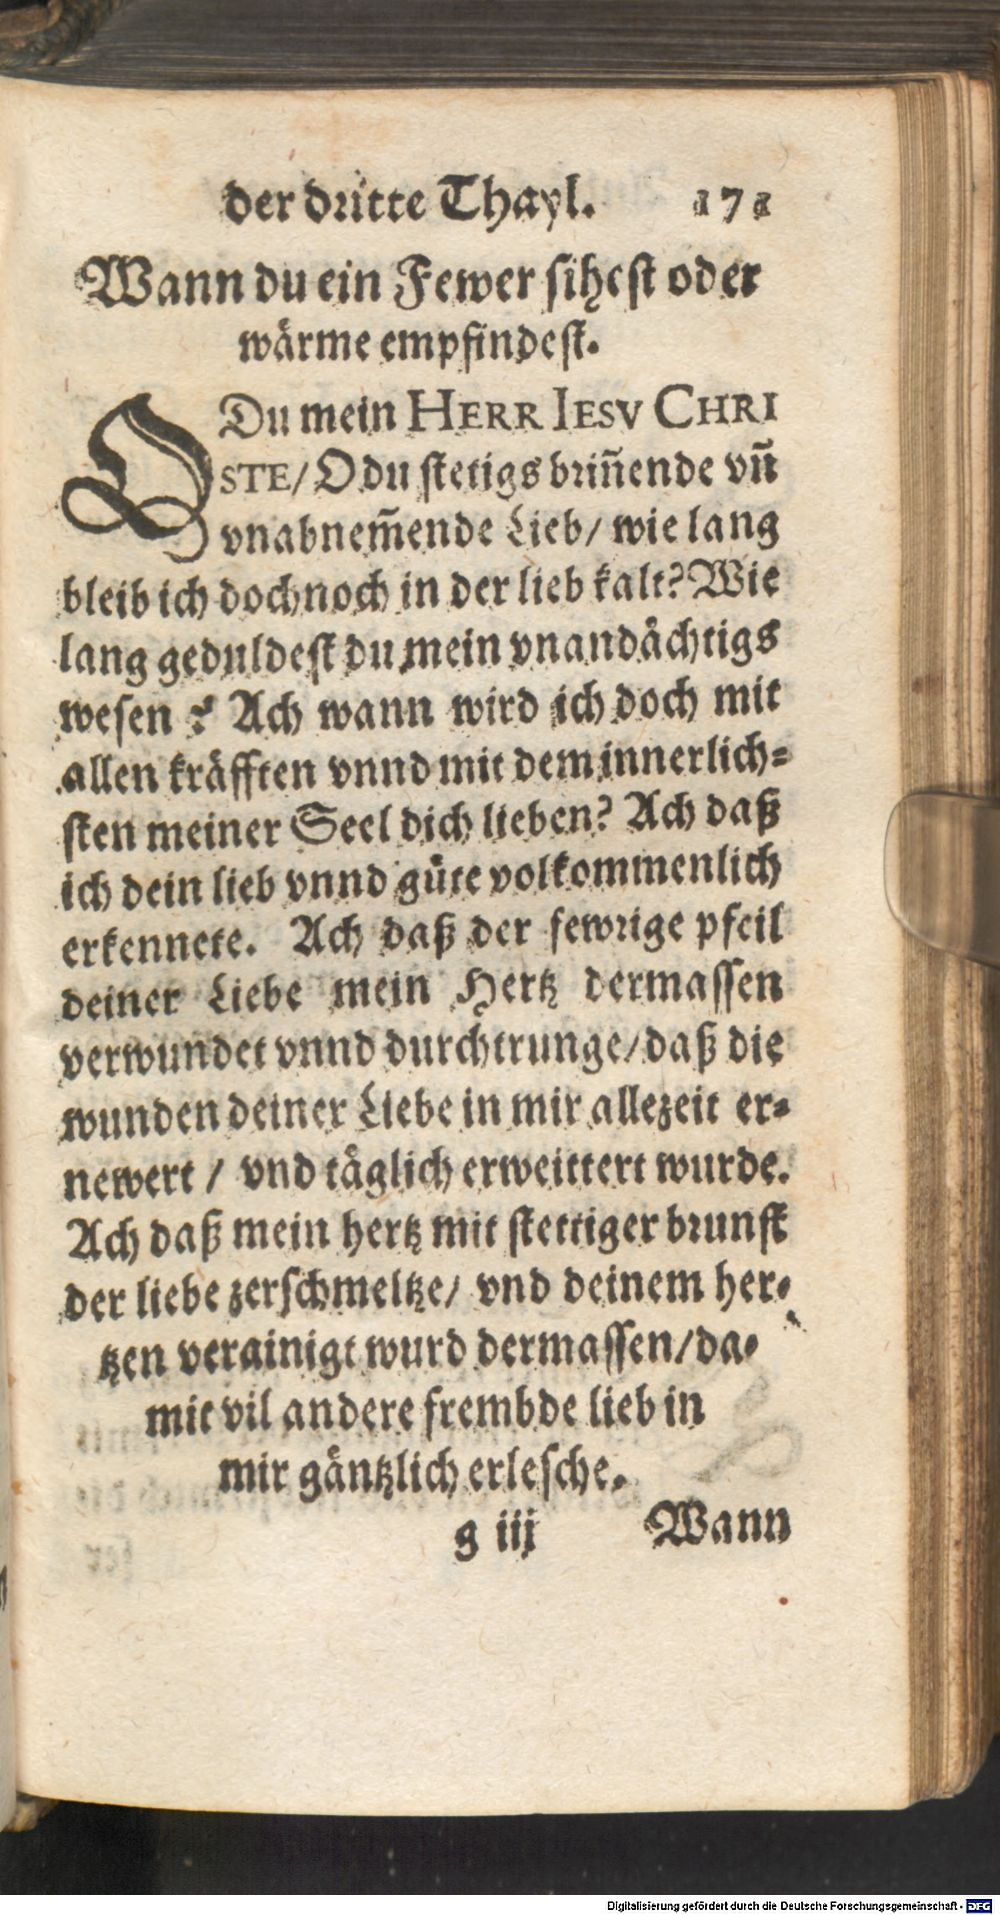 der dritte Thayl. 171
Wann du ein Fewer sihest oder
wärme empfindest.
O Du mein HERR IESV CHRI
STE/ O du stetigs briñende vñ
vnabnem̃ende Lieb/ wie lang
bleib ich doch noch in der lieb kalt? Wie
lang geduldest du mein vnandåchtigs
wesen? Ach wann wird ich doch mit
allen kräfften vnnd mit dem innerlich=
sten meiner Seel dich lieben? Ach daß
ich dein lieb vnnd gůte volkommenlich
erkennete. Ach daß der fewrige pfeil
deiner Liebe mein Hertz dermassen
verwundet vnnd durchtrunge/ daß die
wunden deiner Liebe in mir allezeit er=
newert / vnd täglich erweittert wurde.
Ach daß mein hertz mit stettiger brunst
der liebe zerschmeltze/ vnd deinem her=
tzen verainigt wurd dermassen/ da=
mit vil andere frembde lieb in
mir gäntzlich erlesche.
g iij Wann
Digitalisierung gefördert durch die Deutsche Forschungsgemeinschaft - DFG